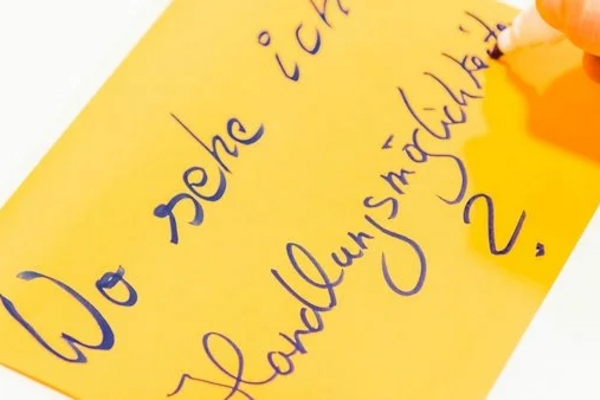 Wo sehe ich
Handlungsmöglichkeite
?